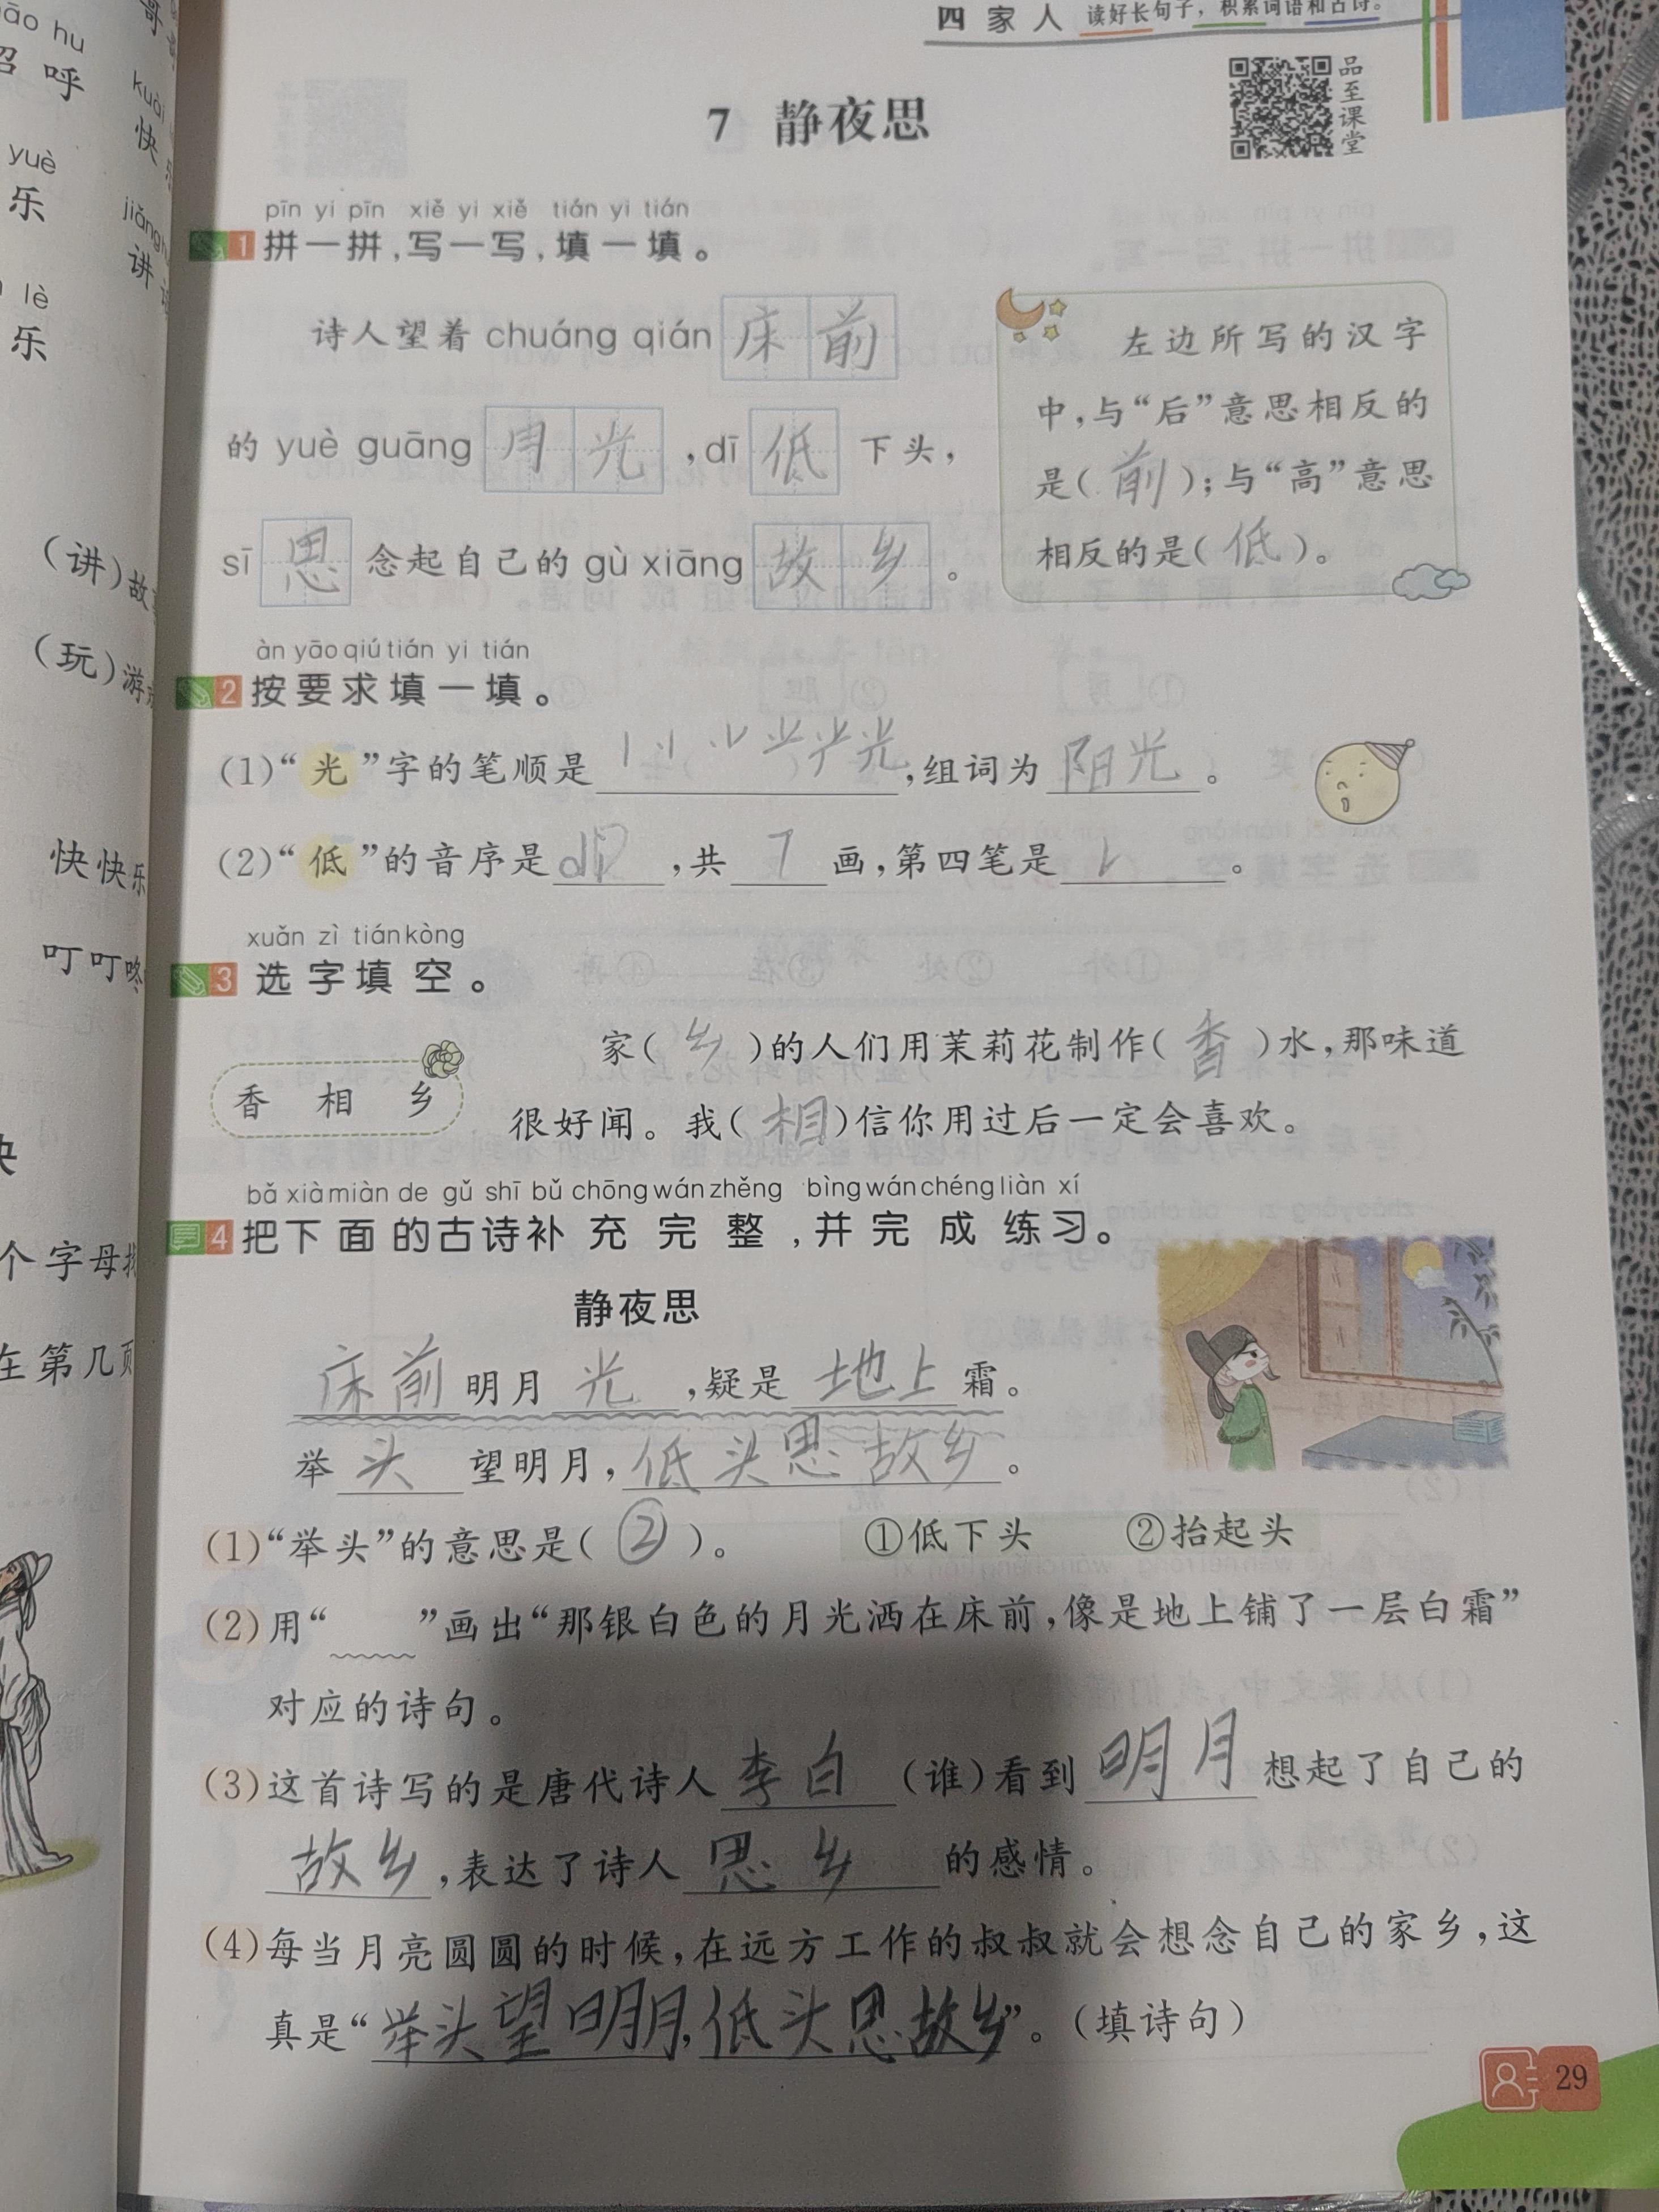 四 家 人 读好长句子，积累词语和古诗。
品至课堂
7 静夜思
pīn yi pīn xiě yi xiě tián yi tián
1 拼一拼，写一写，填一填。
诗人望着 chuáng qián 床前
的 yuè guāng 月光，dī 低 下头，
sī 思 念起自己的 gù xiāng 故乡。
左边所写的汉字
中，与“后”意思相反的
是（前）；与“高”意思
相反的是（低）。
àn yāo qiú tián yi tián
2 按要求填一填。
（1）“光”字的笔顺是 丨 光，组词为 阳光。
（2）“低”的音序是，共 7 画，第四笔是。
xuǎn zì tián kòng
3 选字填空。
香 相 乡
家（乡）的人们用茉莉花制作（香）水，那味道
很好闻。我（相）信你用过后一定会喜欢。
bǎ xià miàn de gǔ shī bǔ chōng wán zhěng bìng wán chéng liàn xí
4 把下面的古诗补充完整，并完成练习。
静夜思
床前明月光，疑是地上霜。
举头望明月，低头思故乡。
（1）“举头”的意思是（②）。 ①低下头 ②抬起头
（2）用“﹏﹏”画出“那银白色的月光洒在床前，像是地上铺了一层白霜”
对应的诗句。
（3）这首诗写的是唐代诗人李白（谁）看到明月想起了自己的
故乡，表达了诗人思乡的感情。
（4）每当月亮圆圆的时候，在远方工作的叔叔就会想念自己的家乡，这
真是“举头望明月，低头思故乡”。（填诗句）
29
āo hu
呼
yuè
乐
lè
乐
kuài
快
jiǎng
讲
（讲）故
（玩）游
快快乐
叮叮咚
个字母
在第几页